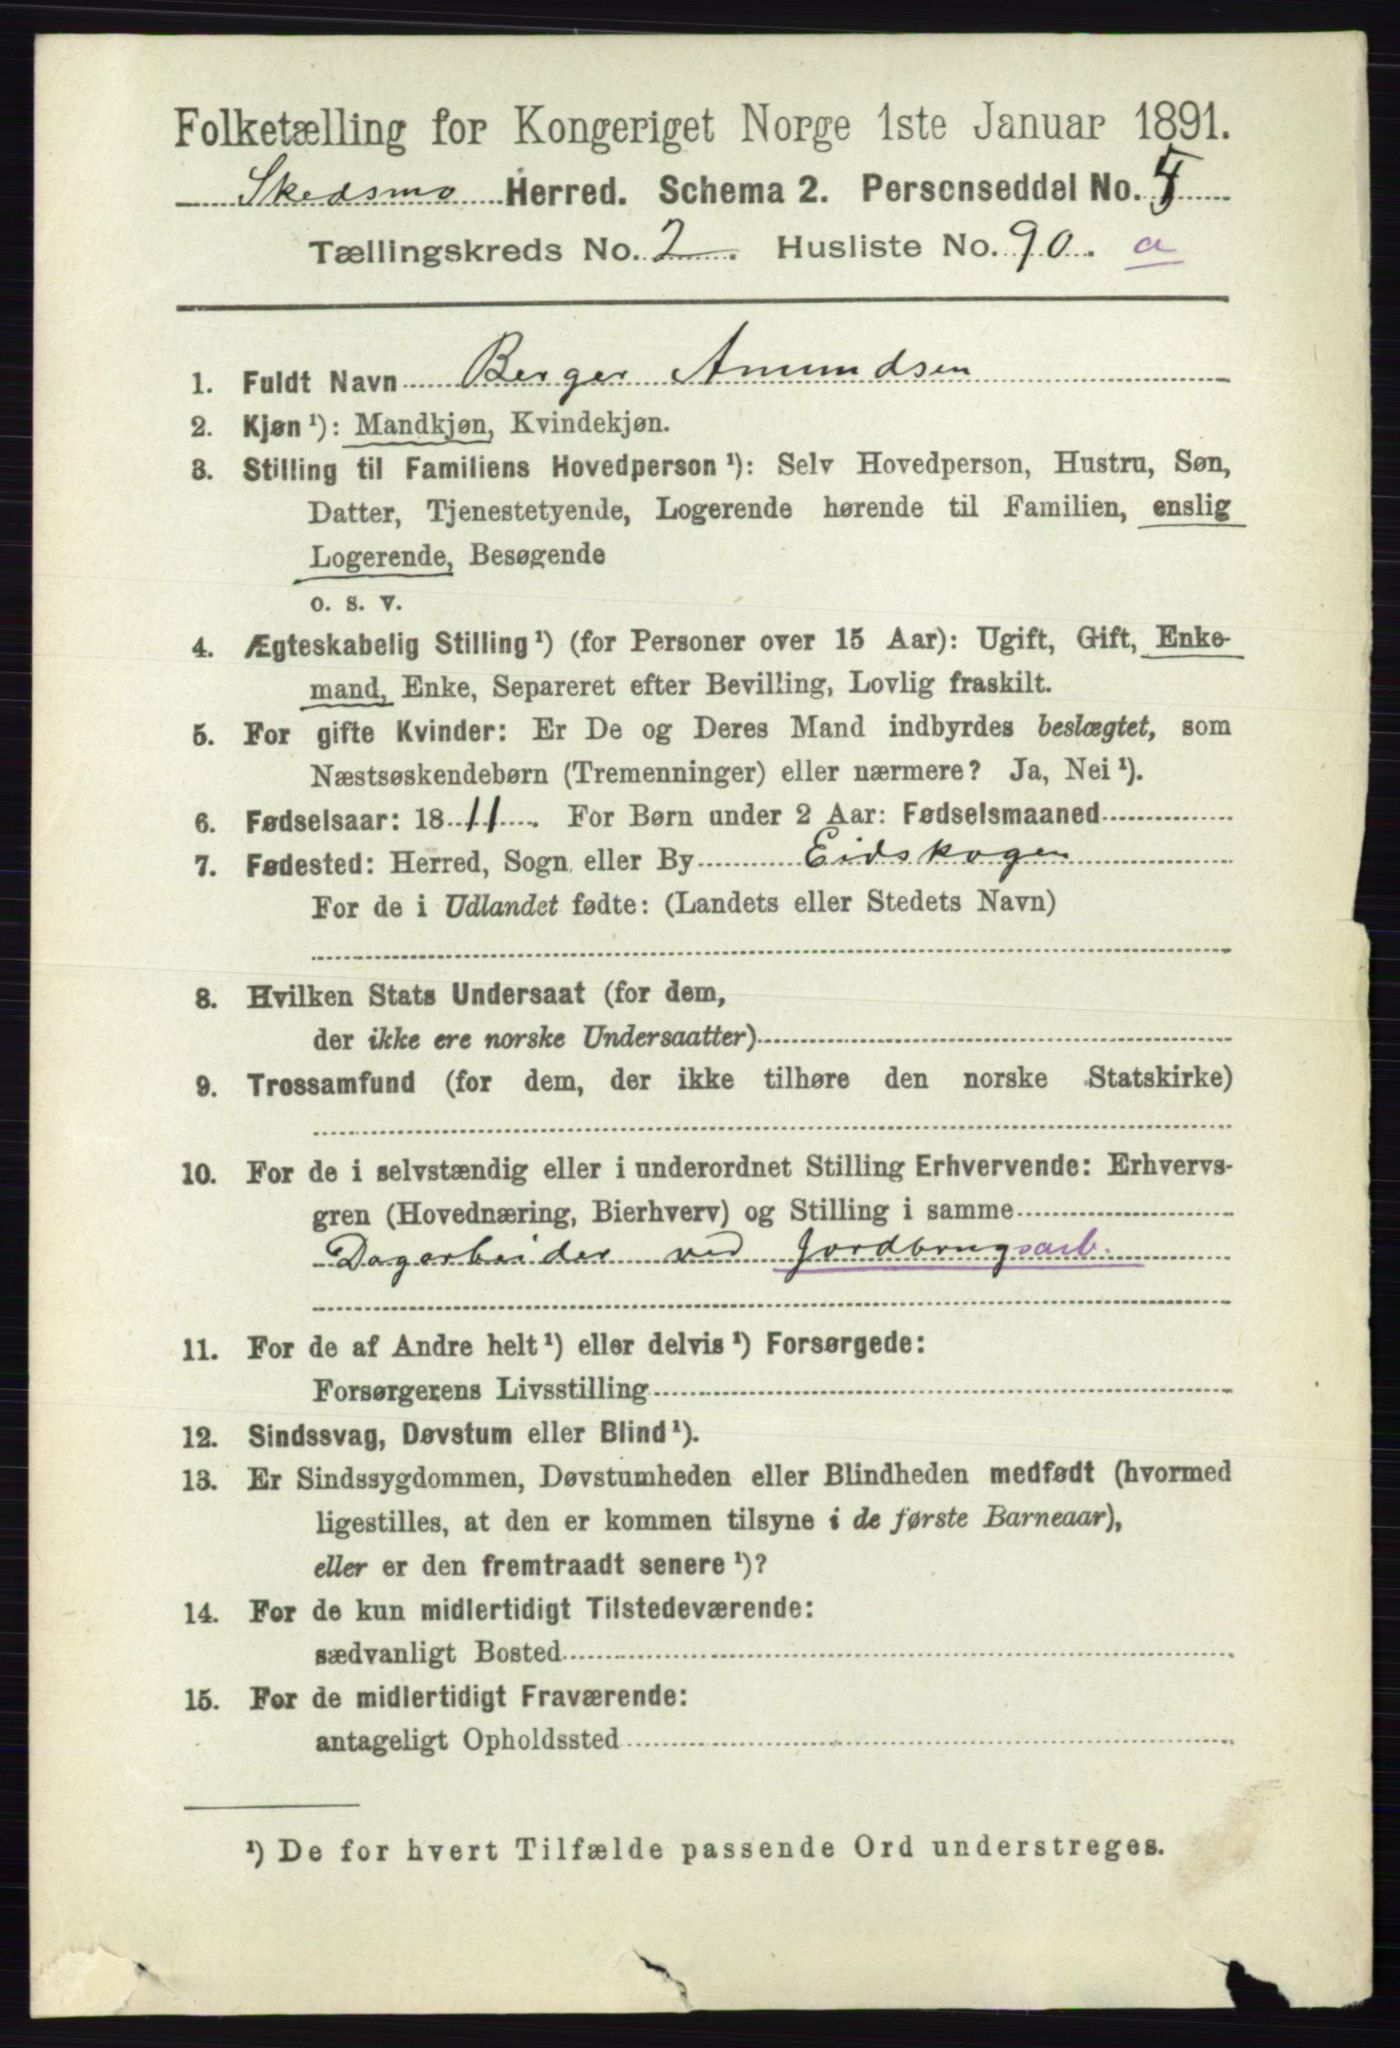 Folketælling for Kongeriget Norge 1ste Januar 1891.
Skedsmo Herred. Schema 2. Personseddel No.
Tællingskreds No. 2. Husliste No. 90. a
1. Fuldt Navn Berger Amundsen
2. Kjøn ¹): Mandkjøn, Kvindekjøn.
3. Stilling til Familiens Hovedperson ¹): Selv Hovedperson, Hustru, Søn,
Datter, Tjenestetyende, Logerende hørende til Familien, enslig
Logerende, Besøgende
o. s. v.
4. Ægteskabelig Stilling ¹) (for Personer over 15 Aar): Ugift, Gift, Enke-
mand, Enke, Separeret efter Bevilling, Lovlig fraskilt.
5. For gifte Kvinder: Er De og Deres Mand indbyrdes beslægtet, som
Næstsøskendebørn (Tremenninger) eller nærmere? Ja, Nei ¹).
6. Fødselsaar: 1811. For Børn under 2 Aar: Fødselsmaaned
7. Fødested: Herred, Sogn eller By Eidskogen
For de i Udlandet fødte: (Landets eller Stedets Navn)
8. Hvilken Stats Undersaat (for dem,
der ikke ere norske Undersaatter)
9. Trossamfund (for dem, der ikke tilhøre den norske Statskirke)
10. For de i selvstændig eller i underordnet Stilling Erhvervende: Erhvervs-
gren (Hovednæring, Bierhverv) og Stilling i samme
Dagarbeider ved Jordbrugsarb.
11. For de af Andre helt ¹) eller delvis ¹) Forsørgede:
Forsørgerens Livsstilling
12. Sindssvag, Døvstum eller Blind ¹).
13. Er Sindssygdommen, Døvstumheden eller Blindheden medfødt (hvormed
ligestilles, at den er kommen tilsyne i de første Barneaar),
eller er den fremtraadt senere ¹)?
14. For de kun midlertidigt Tilstedeværende:
sædvanligt Bosted
15. For de midlertidigt Fraværende:
antageligt Opholdssted
¹) De for hvert Tilfælde passende Ord understreges.